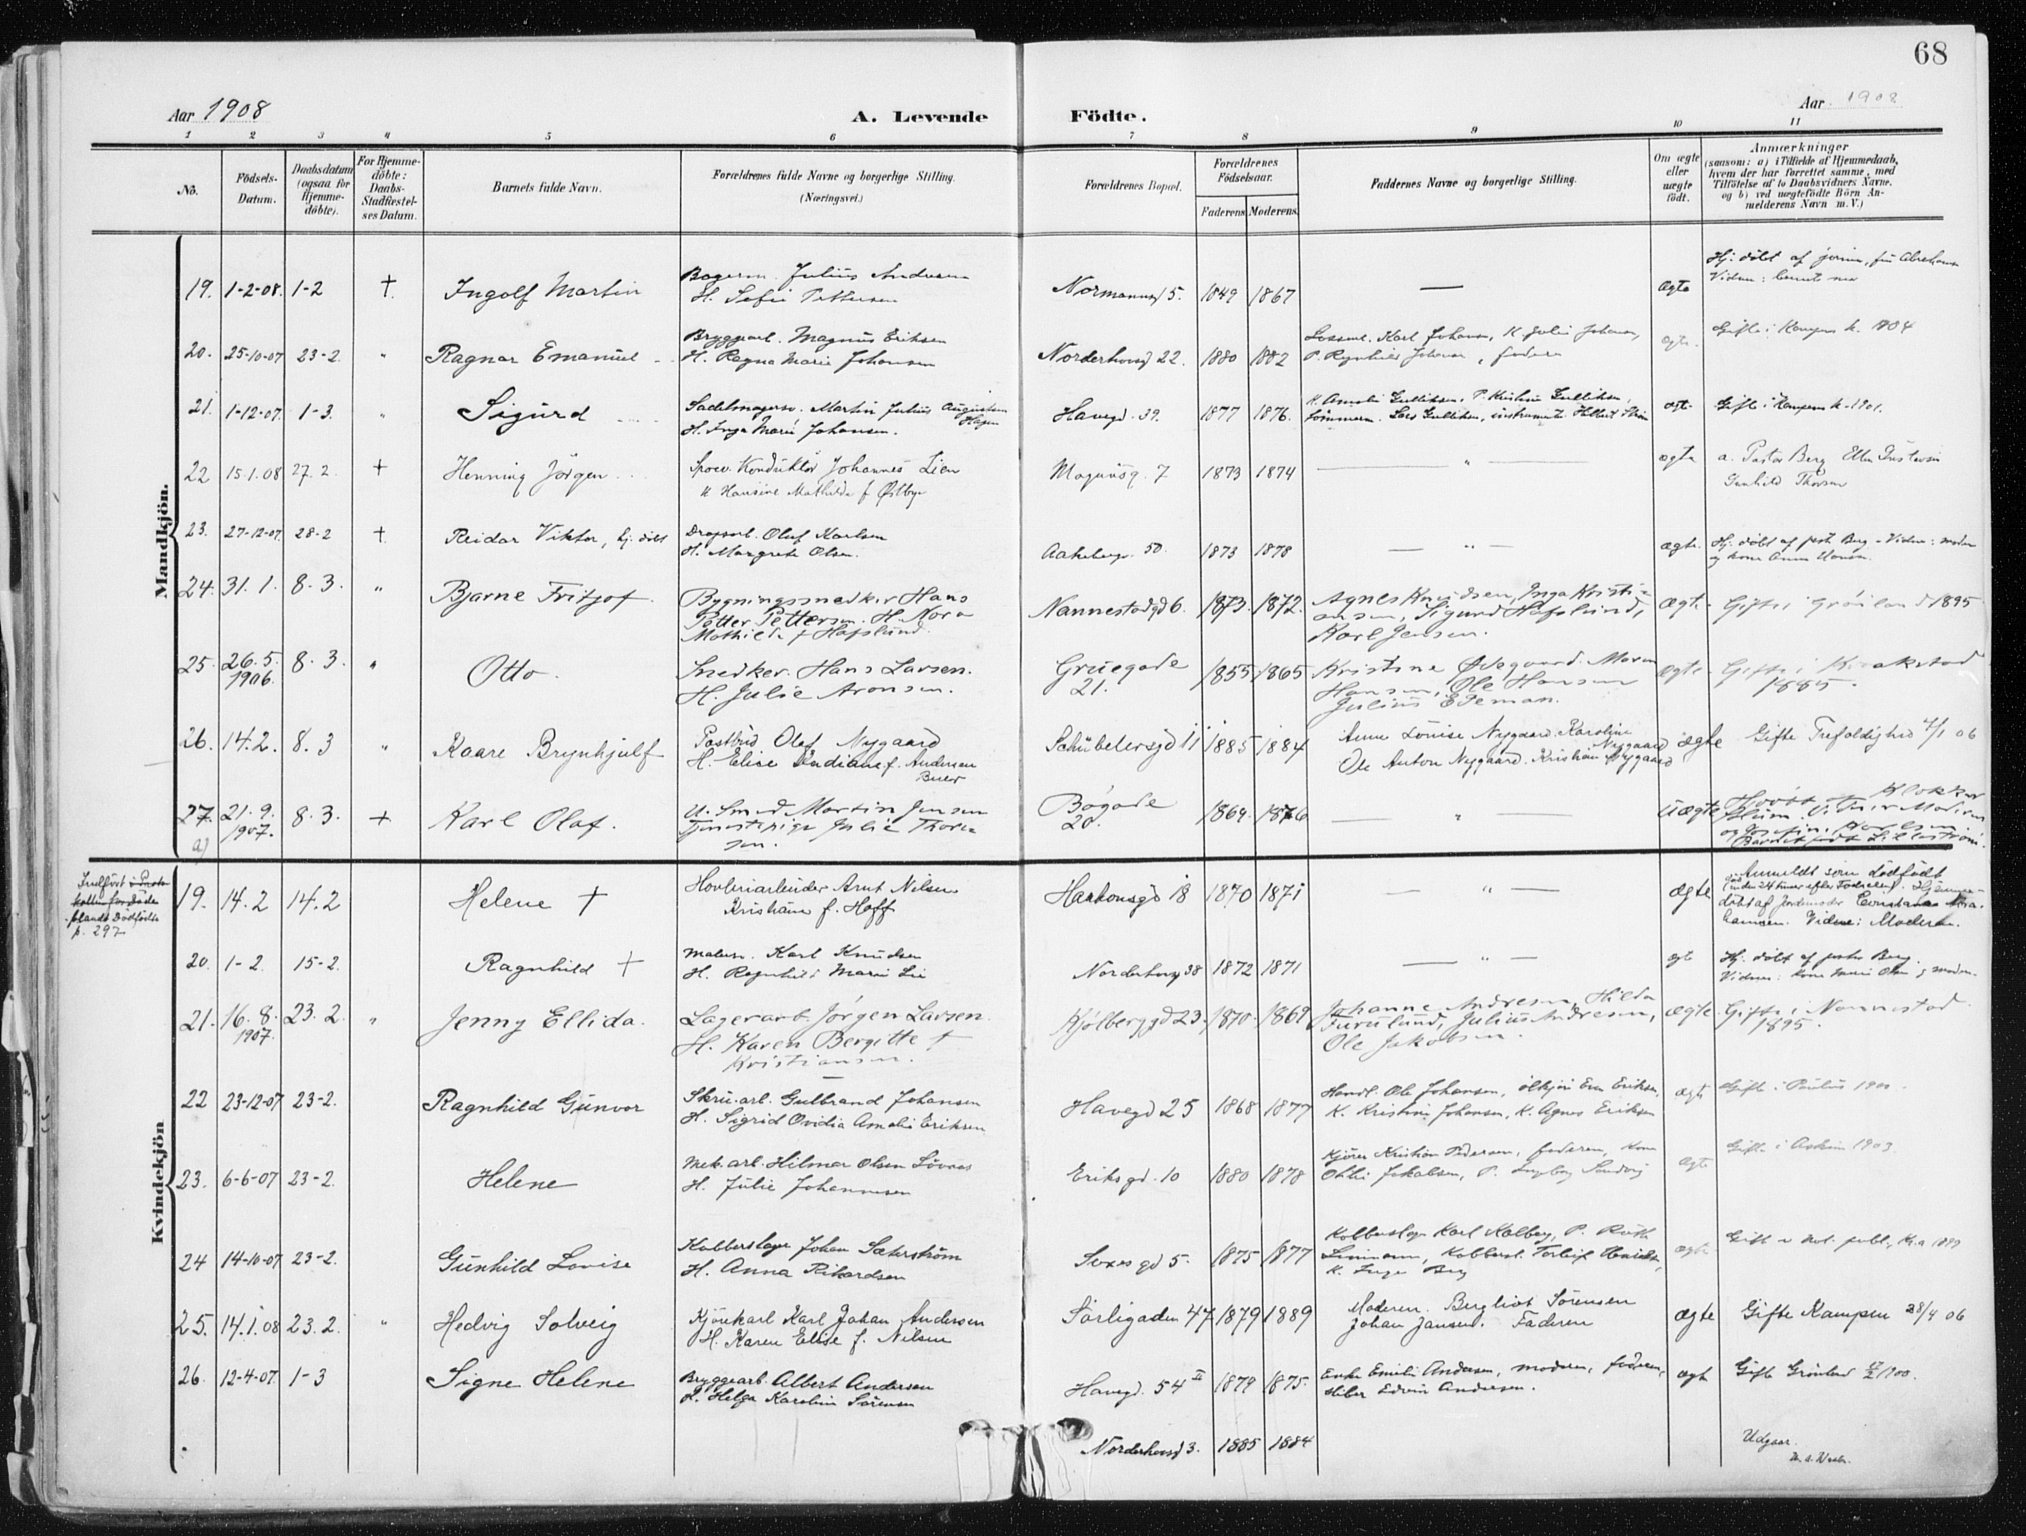 68
Aar 1908 A. Levende Födte. Aar 1908
1 2 3 4 5 6 7 8 9 10 11
No. Födsels-Datum. Daabsdatum (ogsaa for Hjemme-döbte). For Hjemme-döbte: Daabs-Stadfæstel-ses Datum. Barnets fulde Navn. Forældrenes fulde Navne og borgerlige Stilling. (Næringsvei.) Forældrenes Bopæl. Forældrenes Födselsaar. Faderens Moderens. Faddernes Navne og borgerlige Stilling. Om ægte eller uægte födt. Anmærkninger (saasom: a) i Tilfælde af Hjemmedaab, hvem der har forrettet samme, med Tilföielse af to Daabsvidners Navne, og b) ved uægtefödte Börn An-melderens Navn m. V.)
Mandkjön.
19. 1-2-08. 1-2 † Ingolf Martin Julius Andersen
H. Sofie Pettersen Normannsgd 5. 1849 1867 — ægte Hj. döbt af
20. 25-10-07 23-2 " Ragnar Emanuel Bryggearb. Magnus Eriksen
H. Ragna Marie Johansen Norderhovgd 22. 1880 1882 Karl Johansen, K. Julie Johansen,
faderen ægte. Gifte i Kampens k. 1904
21. 1-12-07. 1-3. " Sigurd Sadelmagersv. Martin Julius Augustin Hagen
H. Inga Marie Johansen. Havegd. 39. 1877 1876. K. Amalie Gulliksen, P. Kristine Gulliksen,
Lars Gulliksen, ægte Gifte i Kampens k. 1901.
22 15.1.08 27.2. † Henning Jörgen Sporv. Konduktör Johannes Lien
K Hansine Mathilde f Østbye Magnusg. 7 1873 1874 — " — ægte a. Pastor Berg
Gunhild Thorsen
23. 27-12-07. 28-2 † Reidar Viktor, hj. döbt Olaf Karlsen
H. Margrete Olsen. Aakebergv. 50. 1873 1878 — " — ægte. Hj. döbt af past. Berg - Vidner: moder
24. 31.1. 8.3. " Bjarne Fritjof. Bygningssnedker Hans
Petter Pettersen. H. Nora
Mathilde f. Hafslund. Nannestadgd 6. 1873. 1872. Agnes Knudsen, Inga Kristi-
ansen, Sigurd Hafslund,
Karl Jensen. ægte. Gifte i Grønland 1895
25. 26.5. 1906. 8.3. " Otto. Snedker. Hans Larsen.
H. Julie Aronsen. Gruegade 21. 1855 1865 Kristine Ødegaard. Maren
Hansen, Ole Hansen
Julius Edeman. ægte. Gifte i Kraakstad
1885.
26. 14.2. 8.3 " Kaare Brynhjulf Postbud Olaf Nygaard
H. Elise Indiane f. Andersen
Buer Schübelersgd 11 1885 1884 Anna Louise Nygaard. Karoline Nygaard
Ole Anton Nygaard. Kristian Nygaard ægte Gifte Trefoldighed 4/1 06
27. a) 21.9. 1907. 8.3. † Karl Olaf. U. Smed Martin Jensen
Tjenestepige Julie Thorsen. Bögade 20. 1869. 1876 — " — uægte Klokker
Blum. Vidner Moderen
Kvindekjön
Indfört
blandt Dödfödte
p. 297
19. 14.2 14.2 Helene † Hövleriarbeider Arnt Nilsen
Kristiane f. Hoff Haakonsgd 18 1870 1871 — " — ægte Anmeldt som dödfödt
(död inden 24 timer efter Födselen). Hjemme-
döbt af Jordemoder Constance Abra-
hamsen. Vidne: Moderen.
20. 1-2. 15-2. Ragnhild † Malersv. Karl Knudsen
H. Ragnhild Marie Lie Norderhovg 38 1872 1871 — " — ægte Hj. döbt af pastor Berg.
Vidner: kone Marie Olsen og moder.
21. 16.8. 1907. 23.2. " Jenny Ellida. Lagerarb. Jørgen Larsen.
H. Karen Bergitte f
Kristiansen. Kjølberggd 23. 1870. 1869 Johanne Andresen, Hilda
Furulund, Julius Andresen,
Ole Jakobsen. ægte. Gifte i Nannestad
1895.
22 23-12-07 23-2. Ragnhild Gunvor Skru.arb. Gulbrand Johansen
H. Sigrid Ovidia Amalie Eriksen Havegd 25 1868 1877 Handl. Ole Johansen, Eriksen,
K. Kristine Johansen, K. Agnes Eriksen ægte Gifte i Paulus 1900.
23. 6-6-07 23-2. Helene Mek.arb. Hilmar Olsen
H. Julie Johannesen Eriksgd. 10 1880 1878 Kjörer Kristian Pedersen, faderen, kone
Jakobsen, P. Ingeborg ægte Gifte i Askim 1903
24 14-10-07 23-2. Gunhild Lovise Kobberslager Johan Sæterström
H. Anna Rikardsen Sexesgd 5. 1875 1877 Kobberslager Karl Kalberg, P. Ruth
Kobbersl. Torleif
K. Inga Berg ægte Gifte v. Not. publ., Kr.a 1899
25. 14.1.08 23.2. " Hedvig Solveig Kjörekarl Karl Johan Andersen
H. Karen Elise f. Nilsen Sörligaden 47 1879 1889 Moderen. Bergliot Sörensen
Johan Jansen. Faderen ægte Gifte Kampen 28/4 06
26. 12-4-07. 1-3 Signe Helene Bryggearb. Albert Andersen
H. Helga Karoline Sörensen Havegd. 54 II 1879 1875. Enke Emilie Andersen, moderen, faderen,
Edvin Andersen. ægte Gifte Grönland 1900.
Norderhovgd 3. 1885 1884 Udgaar.